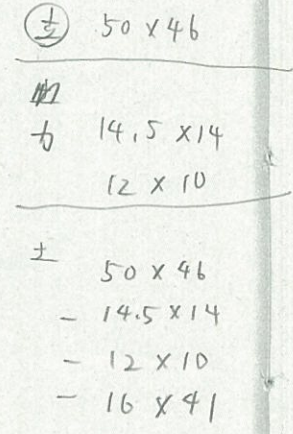 50 × 46
力 14.5 × 14
12 × 10
土
50 × 46
- 14.5 × 14
- 12 × 10
- 16 × 41